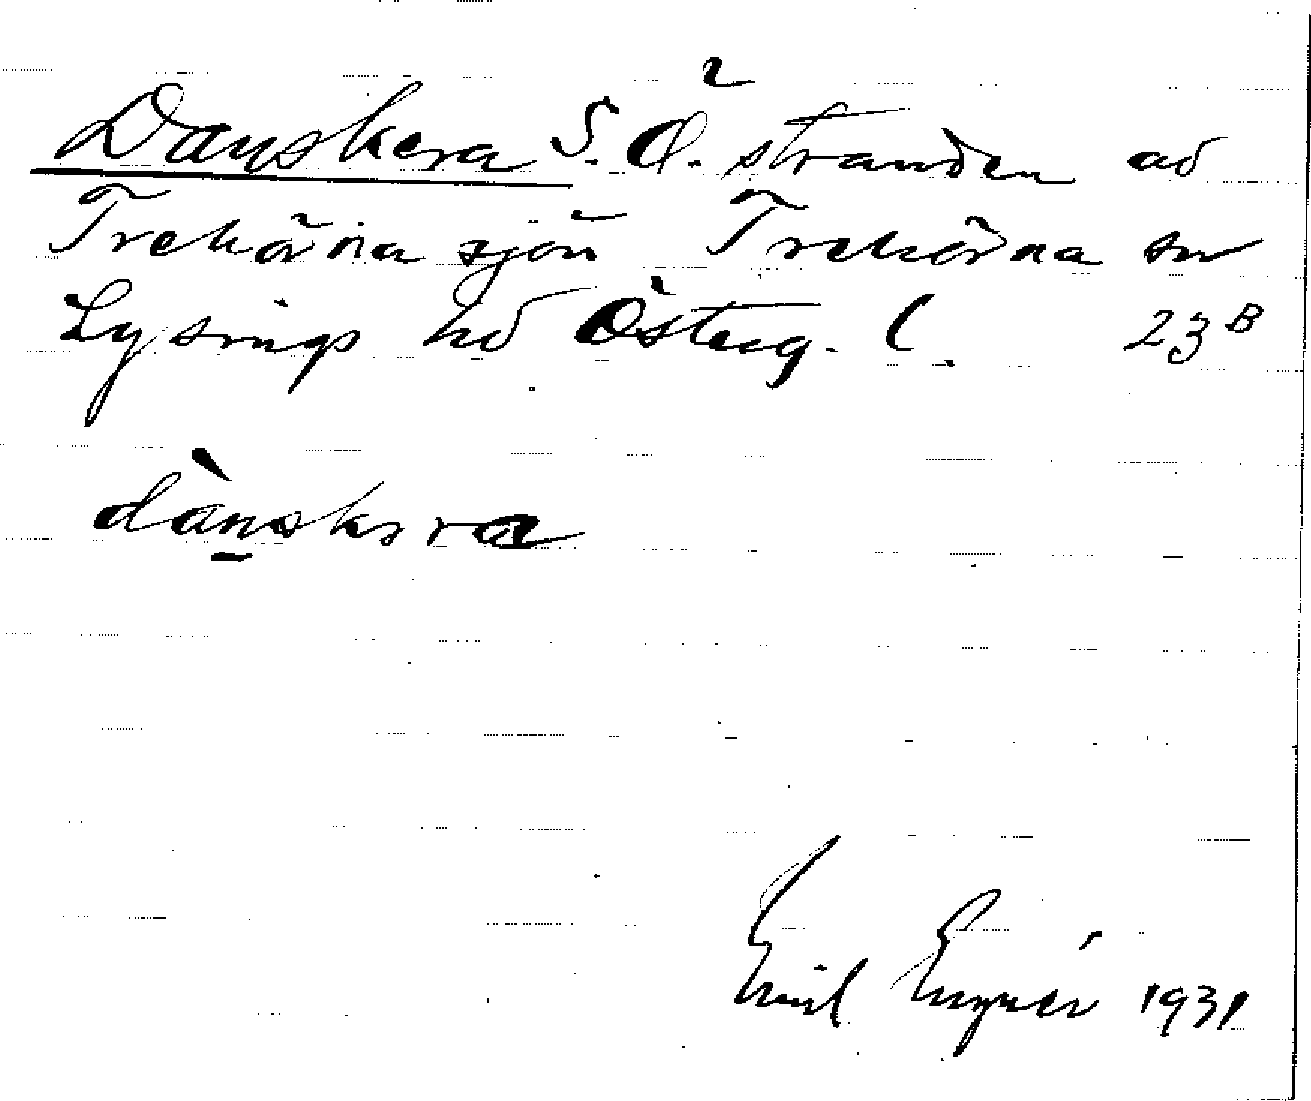 Danskera S.Ö. stranden av
Trehörna sjön Trehörna sn
Lysings hd Österg. l. 23 B
dànskəra
Emil Engnér 1931